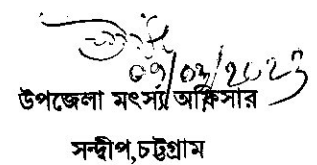 ০৭/০৩/২০২৩
উপজেলা মৎস্য অফিসার
সন্দ্বীপ,চট্টগ্রাম